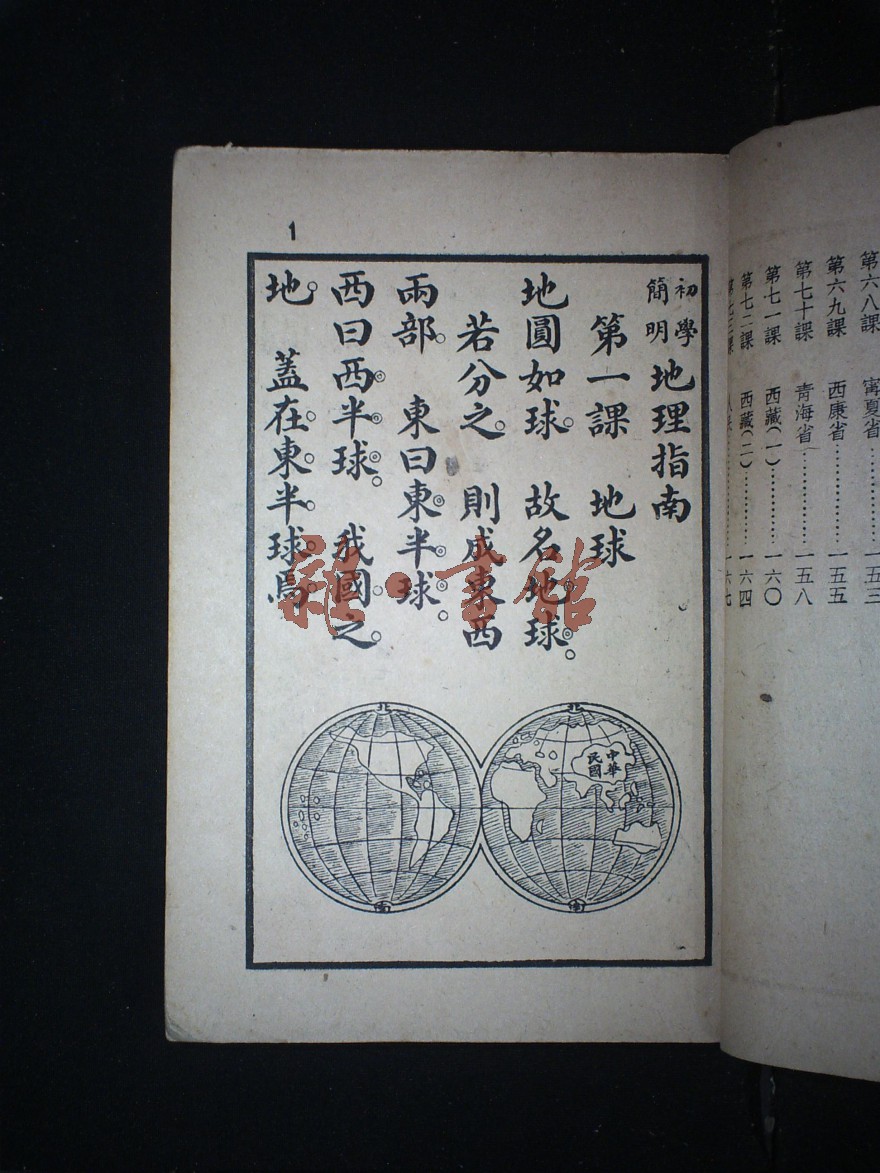 第六八課 寧夏省…………一五三
第六九課 西康省…………一五五
第七十課 青海省…………一五八
第七一課 西藏(一)…………一六〇
第七二課 西藏(二)…………一六四
一六七
1
初學簡明地理指南
第一課 地球
地圓如球。故名地球。
若分之。則成東西
兩部。東曰東半球。
西曰西半球。我國之
地。蓋在東半球焉
北
南
北
中華
民國
南
雜·書館